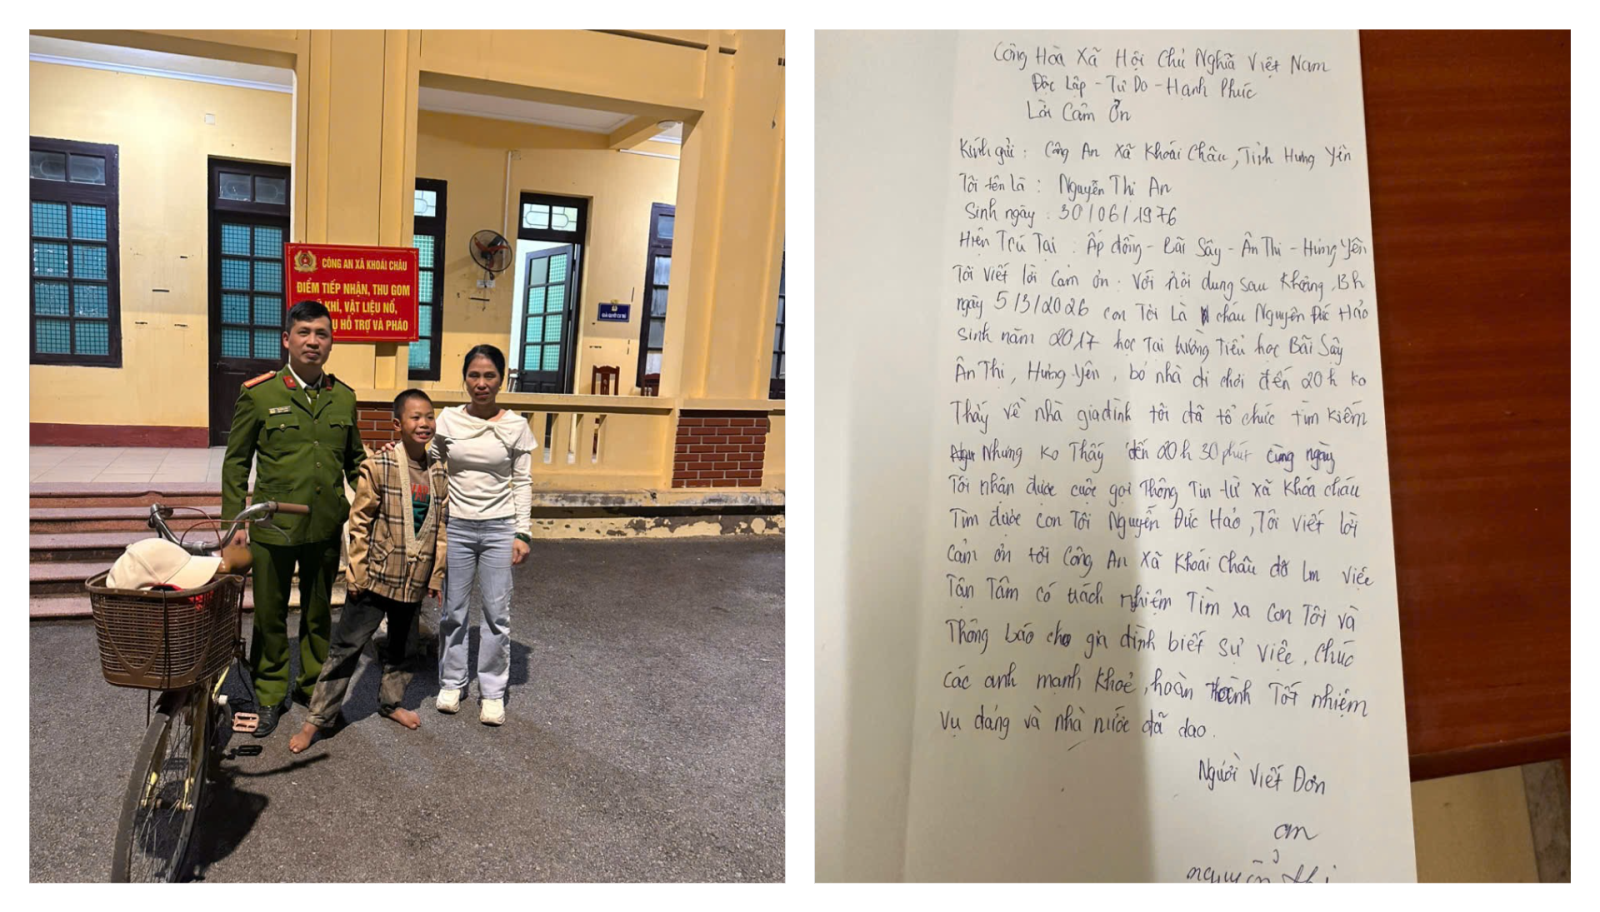 CÔNG AN XÃ KHOÁI CHÂU
ĐIỂM TIẾP NHẬN, THU GOM
KHÍ, VẬT LIỆU NỔ,
HỖ TRỢ VÀ PHÁO
Cộng Hòa Xã Hội Chủ Nghĩa Việt Nam
Độc Lập - Tự Do - Hạnh Phúc
Lời Cảm Ơn
Kính gửi : Công An Xã Khoái Châu, Tỉnh Hưng Yên
Tôi tên là : Nguyễn Thị An
Sinh ngày : 30/06/1976
Hiện Trú Tại : Ấp đông - Bãi Sậy - Ân Thi - Hưng Yên
Tôi viết lời cảm ơn. với nội dung sau Khoảng 13h
ngày 5/3/2026 con Tôi Là cháu Nguyễn Đức Hảo
sinh năm 2017 học Tại trường Tiểu học Bãi Sậy
Ân Thi, Hưng Yên, bỏ nhà đi chơi đến 20h ko
Thấy về nhà gia đình tôi đã tổ chức tìm kiếm
Nhưng ko Thấy đến 20h 30 phút cùng ngày
Tôi nhận được cuộc gọi Thông Tin từ xã Khoá châu
Tìm được con Tôi Nguyễn Đức Hảo, Tôi viết lời
cảm ơn tới Công An Xã Khoái Châu đã Lm việc
Tận Tâm có trách nhiệm Tìm ra con Tôi và
Thông báo cho gia đình biết sự việc, chúc
các anh mạnh khoẻ, hoàn Thành Tốt nhiệm
vụ đảng và nhà nước đã dao.
Người Viết Đơn
An
nguyễn thị